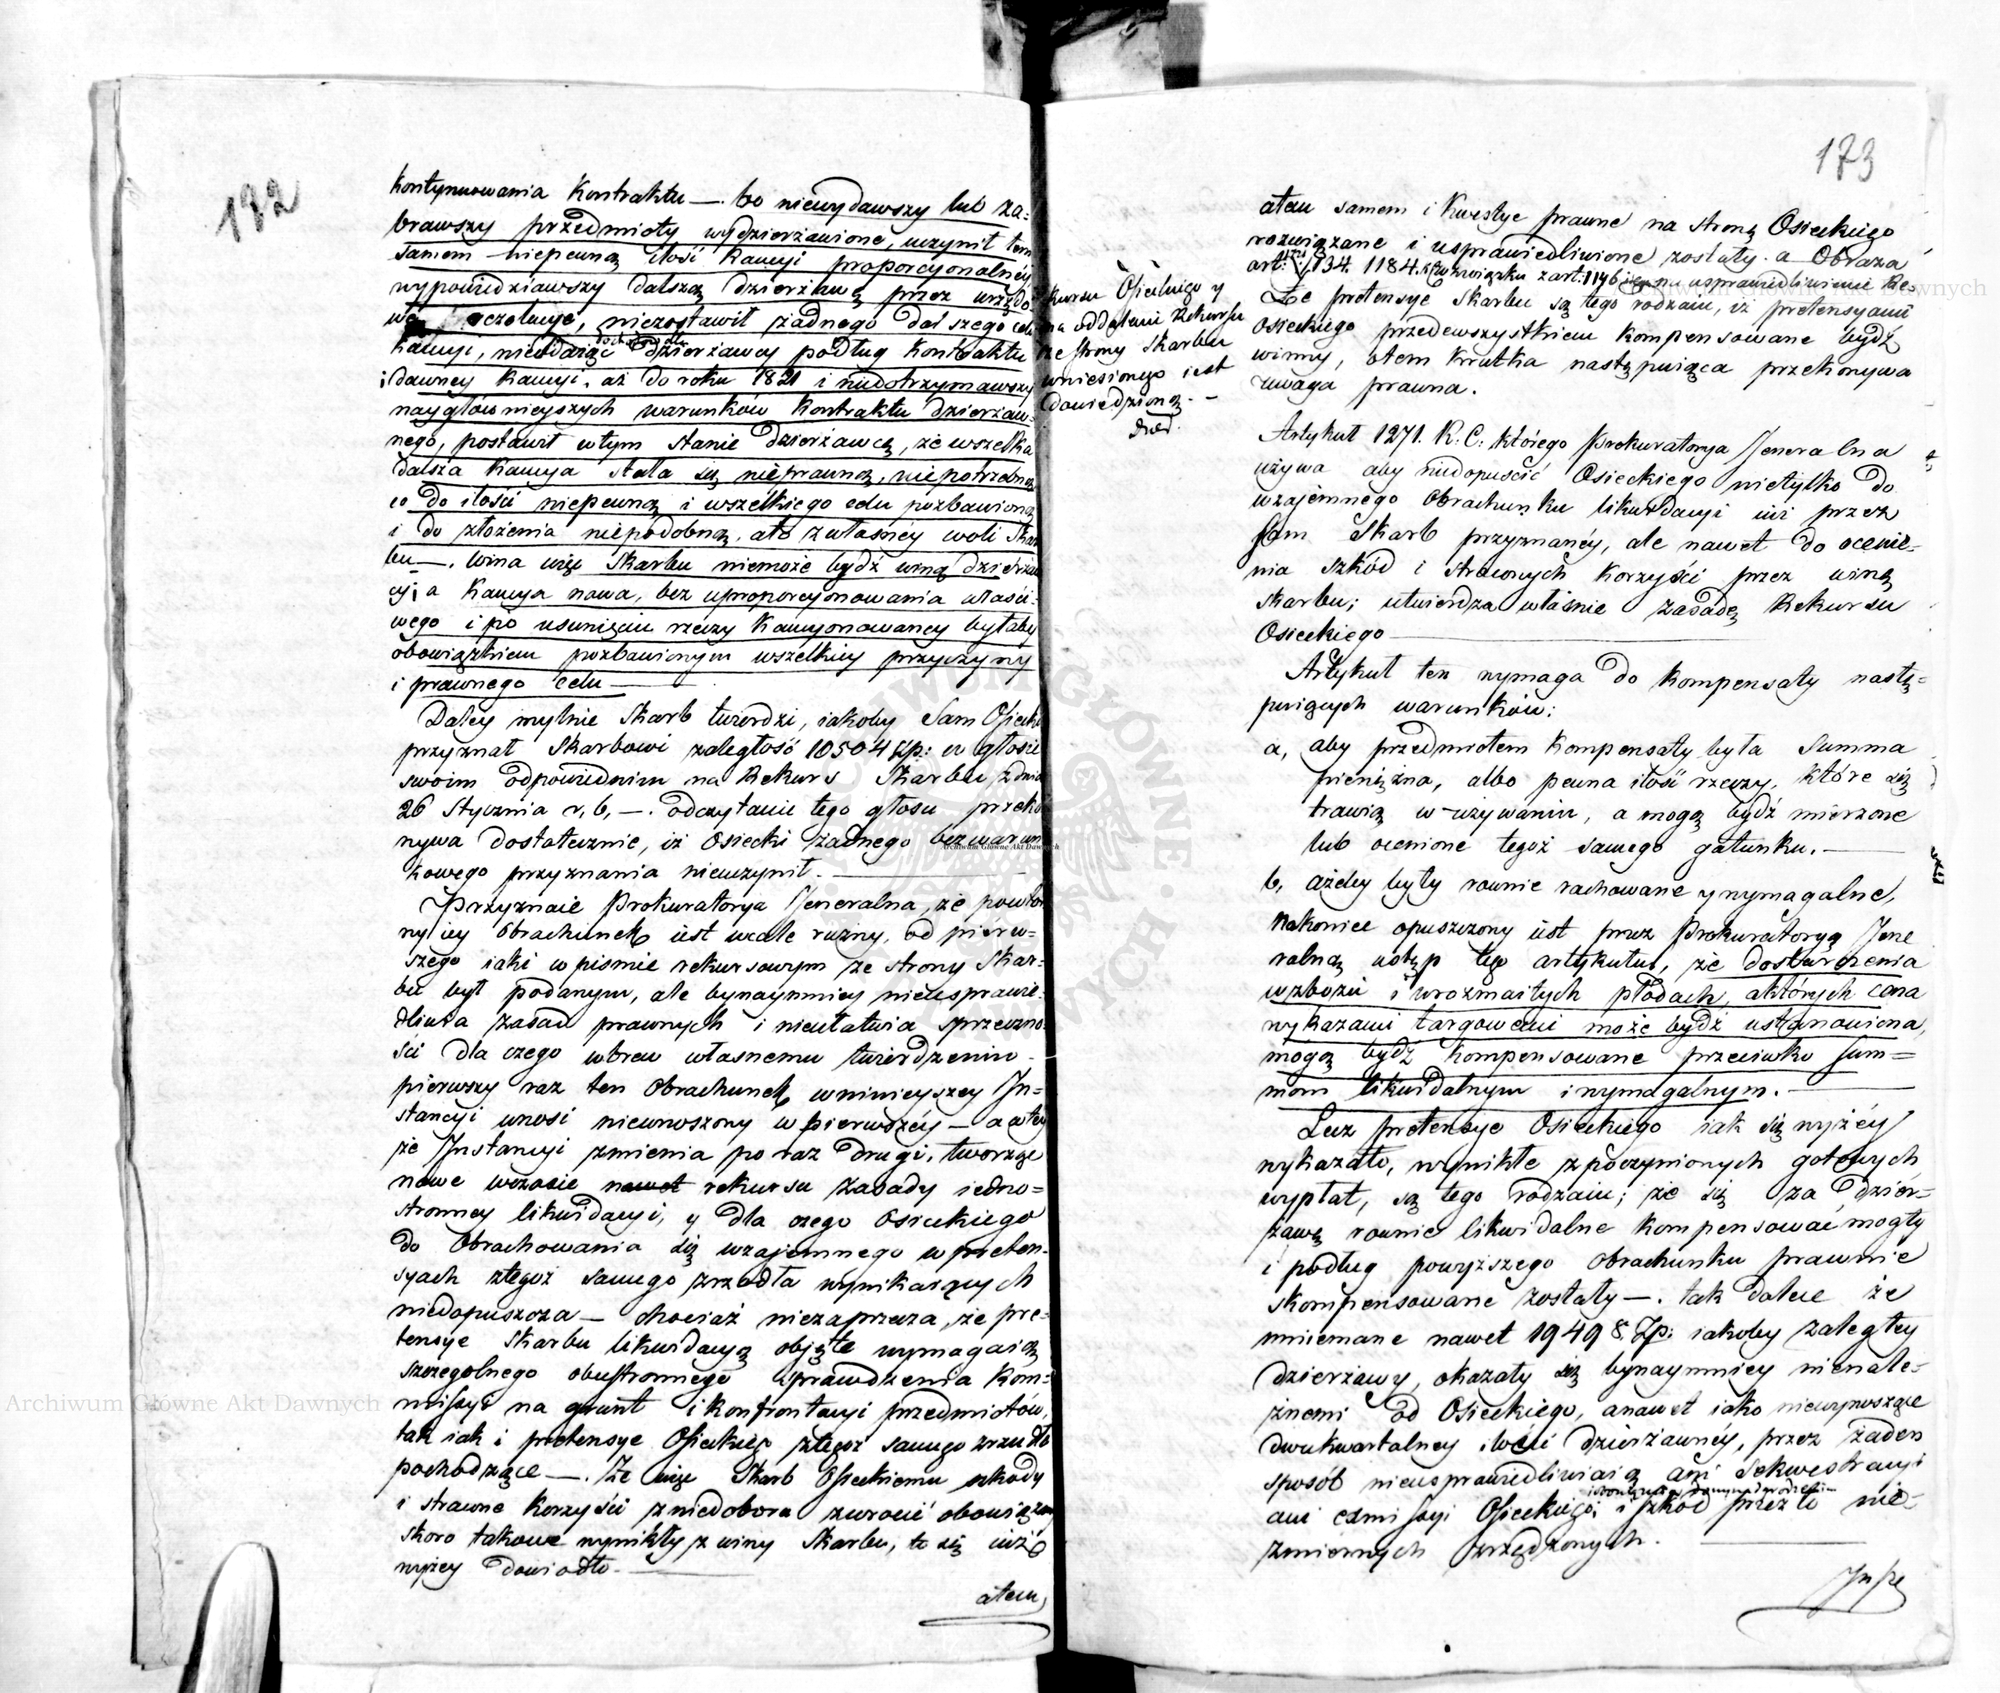 132
kontynuowania Kontraktu —. bo niewydawszy lub za=
brawszy przedmioty wydzierżawione, uczynił tem
samem niepewną ilość Kaucyi proporcyonalnéy
wypowiedziawszy dalszą dzierżawę przez urzędo
wą rezolucyę, niezostawił żadnego dalszego celu
Kaucyi, nieodaiąc dzierżawcy podług Kontraktu
i dawney Kaucyi, aż do roku 1821 i niedotrzymawszy
naygłównieyszych warunków Kontraktu dzierżaw=
nego, postawił w tym stanie dzierżawcę, że wszelka
dalsza Kaucya stała się nieprawną, niepotrzebną
co do ilości niepewną i wszelkiego celu pozbawioną
i do złożenia niepodobną, a to z własnéy woli Skar
bu —. wina więc Skarbu niemoże bydź winą dzierżaw
cy; a Kaucya nowa, bez uproporcyonowania właści=
wego i po usunięciu rzeczy Kaucyonowaney byłaby
obowiązkiem pozbawionym wszelkiey przyczyny
i prawnego celu —
Daley mylnie Skarb twierdzi, iakoby Sam Osiecki
przyznał Skarbowi zaległość 10504 Zp: w głosie
swoim odpowiednim na Rekurs Skarbu z dnia
26 Stycznia r, b, —. odczytanie tego głosu przeko
nywa dostatecznie, iż Osiecki żadnego bezwarun
kowego przyznania nieuczynił. —
Przyznaie Prokuratorya Jeneralna, że powtór
ny iey Obrachunek iest wcale rużny, od pierw=
szego iaki w piśmie rekursowym ze strony Skar=
bu był podanym, ale bynaymniey nieusprawie=
dliwia zasad prawnych i nieułatwia sprzeczno=
ści dla czego wbrew własnemu twierdzeniu
pierwszy raz ten Obrachunek w ninieyszey In=
stancyi wnosi niewnoszony w pierwszéy — a w tey
że Instancyi zmienia po raz drugi, tworząc
nowe w czasie nawet rekursu zasady iedno=
stronney likwidacyi, y dla czego Osieckiego
do Obrachowania się wzajemnego w preten=
syach z tegoż samego zrzodła wynikaiących
niedopuszcza — chociaż niezaprzecza, że pre=
tensye Skarbu likwidacyą objęte wymagaią
szczegolnego obustronnego sprawdzenia Kom=
missyi na grunt i konfrontacyi przedmiotów,
tak iak i pretensye Osieckiego z tegoż samego zrzudła
pochodzące —. Że więc Skarb Osieckiemu szkody
i stracone Korzyści z niedoboru zwrocić obowiązany
skoro takowe wynikły z winy Skarbu, to się iuż
wyżey dowiodło. —
atem,
kursu Osieckiego y
na oddaleniu Rekursu
ze strony Skarbu
wniesionego iest
dowiedzioną. —
173
atem samem i Kwestye prawne na stronę Osieckiego
rozwiązane i usprawiedliwione zostały. a Obraza
art: 1134. 1184. w związku z art: 1146 usprawiedliwieniu Re=
Że pretensye Skarbu są tego rodzaiu, iż pretensyami
Osieckiego przedewszystkiem kompensowane bydź
winny, otem krutka następuiąca przekonywa
uwaga prawna.
Artykuł 1271. K. C. którego Prokuratorya Jeneralna
używa aby niedopuścić Osieckiego nietylko do
wzajemnego Obrachunku likwidacyi iuż przez
sam Skarb przyznanéy, ale nawet do ocenie=
nia szkód i straconych korzyści przez winę
Skarbu; utwierdza właśnie zasadę Rekursu
Osieckiego —
Artykuł ten wymaga do kompensaty nastę=
puiących warunków:
a, aby przedmiotem kompensaty była Summa
pieniężna, albo pewna ilość rzeczy, które się
trawią w używaniu, a mogą bydź mierzone
lub ocenione tegoż samego gatunku. —
b, ażeby były rownie rachowane y wymagalne,
Nakoniec opuszczony iest przez Prokuratoryą Jene
ralną ustęp tego artykułu, że dostarczenia
w zbożu i w rozmaitych płodach, których cena
wykazami targowemi może bydź ustanowiona,
mogą bydź kompensowane przeciwko sum=
mom likwidalnym i wymagalnym. —
Lecz pretensye Osieckiego iak się wyżéy
wykazało, wynikłe z poczynionych gotowych
wypłat, są tego rodzaiu; że się za dzier=
żawę rownie likwidalne kompensować mogły
i podług powyższego obrachunku prawnie
skompensowane zostały —. tak dalece że
mniemane nawet 19498. Zp: iakoby zaległey
dzierżawy, okazały się bynaymniey nienale=
żnemi od Osieckiego, a nawet iako niewynoszące
dwukwartalney ilości dzierżawney, przez żaden
sposób nieusprawiedliwiaią ani Sekwestracyi
ani exmissyi Osieckiego; i szkód przez to nie=
zmiernych zrządzonych. —